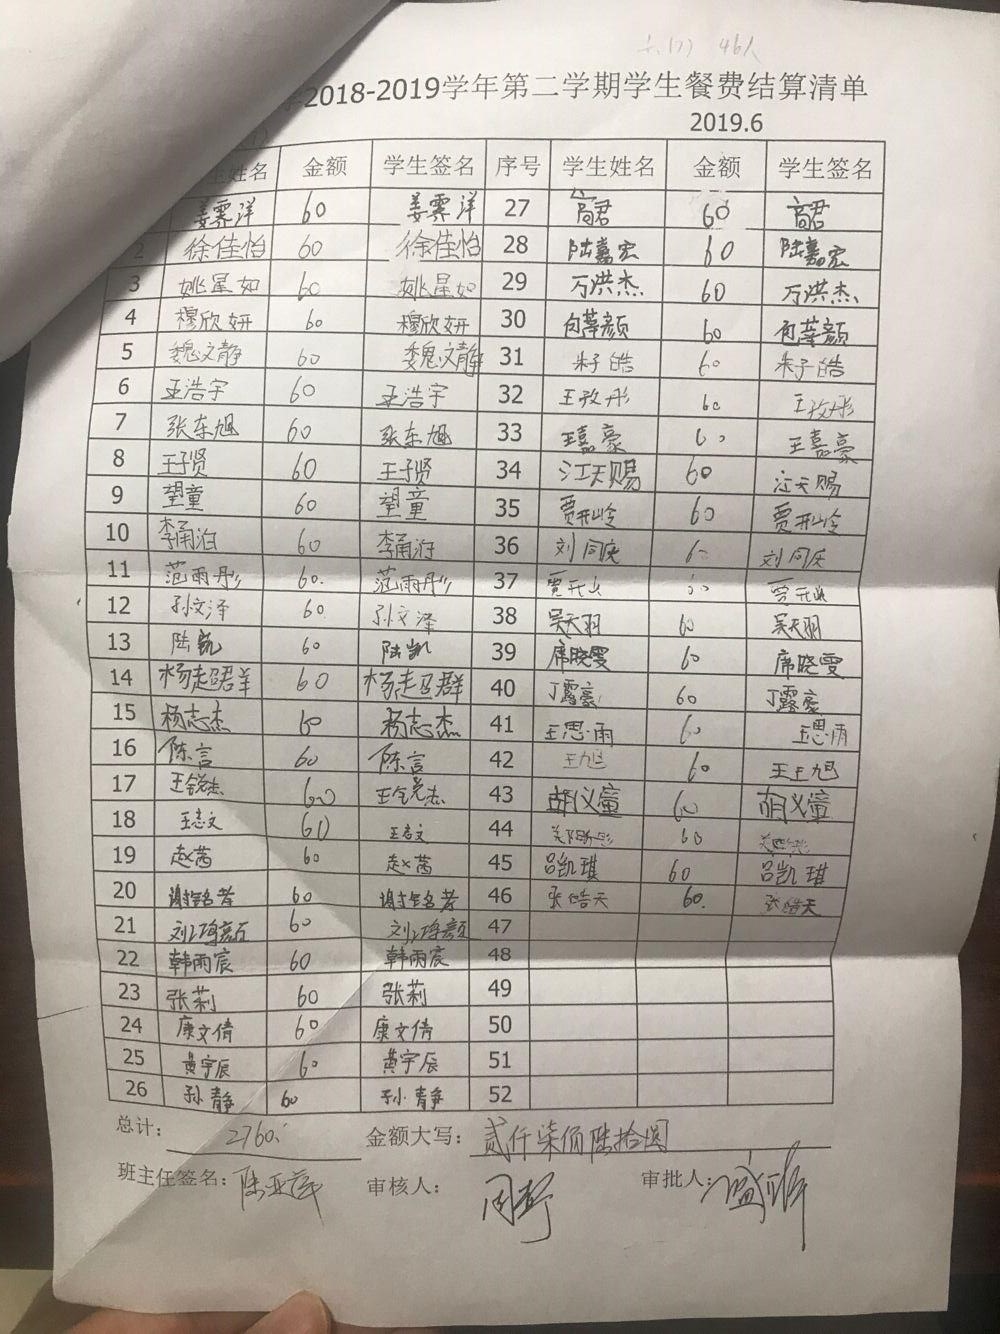 46人
2018-2019学年第二学期学生餐费结算清单
2019.6
姓名 金额 学生签名 序号 学生姓名 金额 学生签名
姜霁洋 60 姜霁洋 27 高君 60 高君
2 徐佳怡 60 徐佳怡 28 陆嘉宏 60 陆嘉宏
3 姚星如 60 姚星如 29 万洪杰 60 万洪杰
4 穆欣妍 60 穆欣妍 30 60
5 魏文静 60 魏文静 31 朱子皓 60 朱子皓
6 王浩宇 60 王浩宇 32 王孜彤 60 王孜彤
7 张东旭 60 张东旭 33 王嘉豪 60 王嘉豪
8 王子贤 60 王子贤 34 江天赐 60 江天赐
9 望童 60 望童 35 60
10 60 36 刘同庆 60 刘同庆
11 范雨彤 60. 范雨彤 37 60
12 孙文泽 60 孙文泽 38 吴天羽 60 吴天羽
13 陆凯 60 陆凯 39 席晓雯 60 席晓雯
14 60 40 丁露豪 60 丁露豪
15 杨志杰 60 杨志杰 41 王思雨 60 王思雨
16 陈言 60 陈言 42 王旭 60 王旭
17 王锐杰 60 王锐杰 43 胡义童 60 胡义童
18 王志文 60 王志文 44 60
19 赵茜 60 赵茜 45 吕凯琪 60 吕凯琪
20 60 46 张皓天 60. 张皓天
21 60 47
22 韩雨宸 60 韩雨宸 48
23 张莉 60 张莉 49
24 康文倩 60 康文倩 50
25 黄宇辰 60 黄宇辰 51
26 孙静 60 孙静 52
总计: 2760. 金额大写: 贰仟柒佰陆拾圆
班主任签名: 审核人: 审批人: